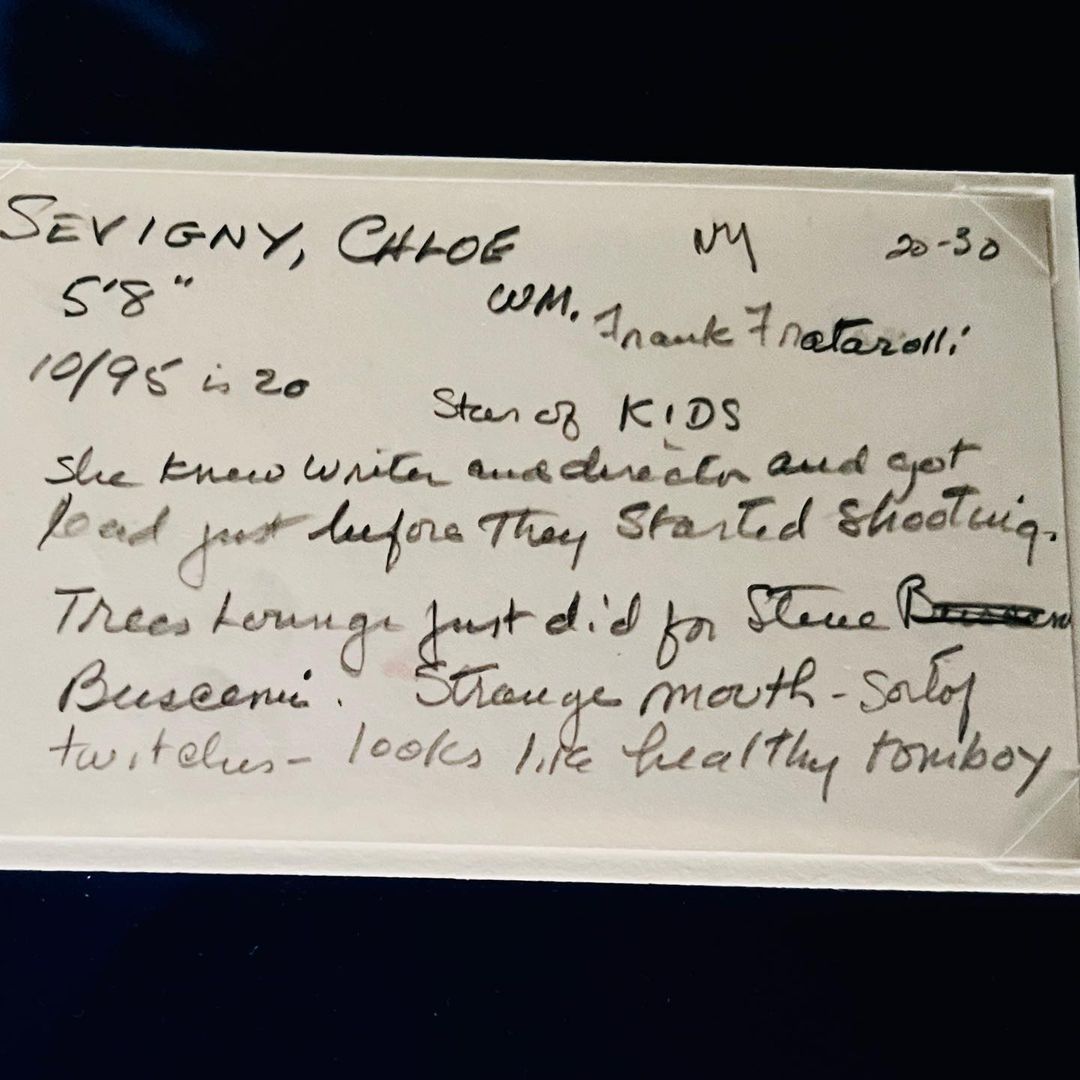 SEVIGNY, CHLOE NY 20-30
5'8" WM. Frank Fratarolli
10/95 is 20
Star of KIDS
She knew writer and director and got
lead just before They Started Shooting.
Trees Lounge just did for Steve
Buscemi. Strange mouth - Sort of
twitches - looks like healthy tomboy